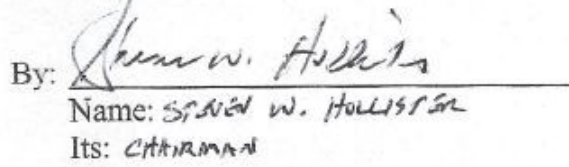 By: Steven W. Hollister
Name: STEVEN W. HOLLISTER
Its: CHAIRMAN